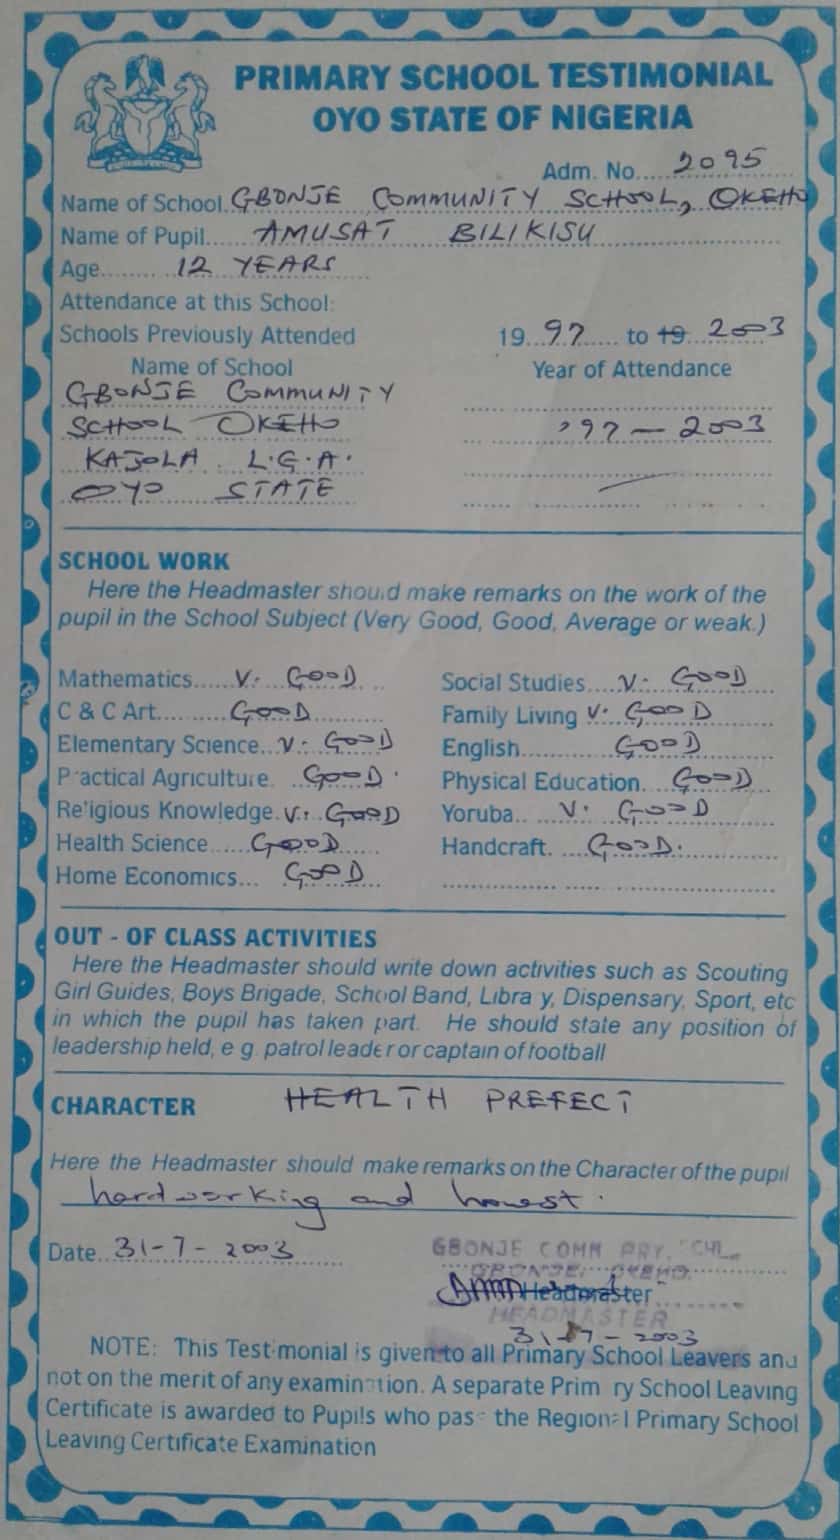 PRIMARY SCHOOL TESTIMONIAL
OYO STATE OF NIGERIA
Adm. No. 2095
Name of School GBONJE COMMUNITY SCHOOL, OKEHO
Name of Pupil AMUSAT BILIKISU
Age 12 YEARS
Attendance at this School:
Schools Previously Attended 1997 to 19 2003
Name of School Year of Attendance
GBONJE COMMUNITY
SCHOOL OKEHO '97 - 2003
KAJOLA L.G.A.
OYO STATE
SCHOOL WORK
Here the Headmaster should make remarks on the work of the
pupil in the School Subject (Very Good, Good, Average or weak.)
Mathematics V. GOOD Social Studies V. GOOD
C & C Art GOOD Family Living V. GOOD
Elementary Science V. GOOD English GOOD
Practical Agriculture GOOD Physical Education GOOD
Religious Knowledge V. GOOD Yoruba V. GOOD
Health Science GOOD Handcraft. GOOD.
Home Economics GOOD
OUT - OF CLASS ACTIVITIES
Here the Headmaster should write down activities such as Scouting
Girl Guides, Boys Brigade, School Band, Library, Dispensary, Sport, etc
in which the pupil has taken part. He should state any position of
leadership held, e g. patrol leader or captain of football
CHARACTER HEALTH PREFECT
Here the Headmaster should make remarks on the Character of the pupil
hardworking and honest.
Date 31-7-2003 GBONJE COMM PRY. SCHL,
GBONJE, OKEHO.
Headmaster
HEADMASTER
31-7-2003
NOTE: This Testimonial is given to all Primary School Leavers and
not on the merit of any examination. A separate Primary School Leaving
Certificate is awarded to Pupils who pass the Regional Primary School
Leaving Certificate Examination